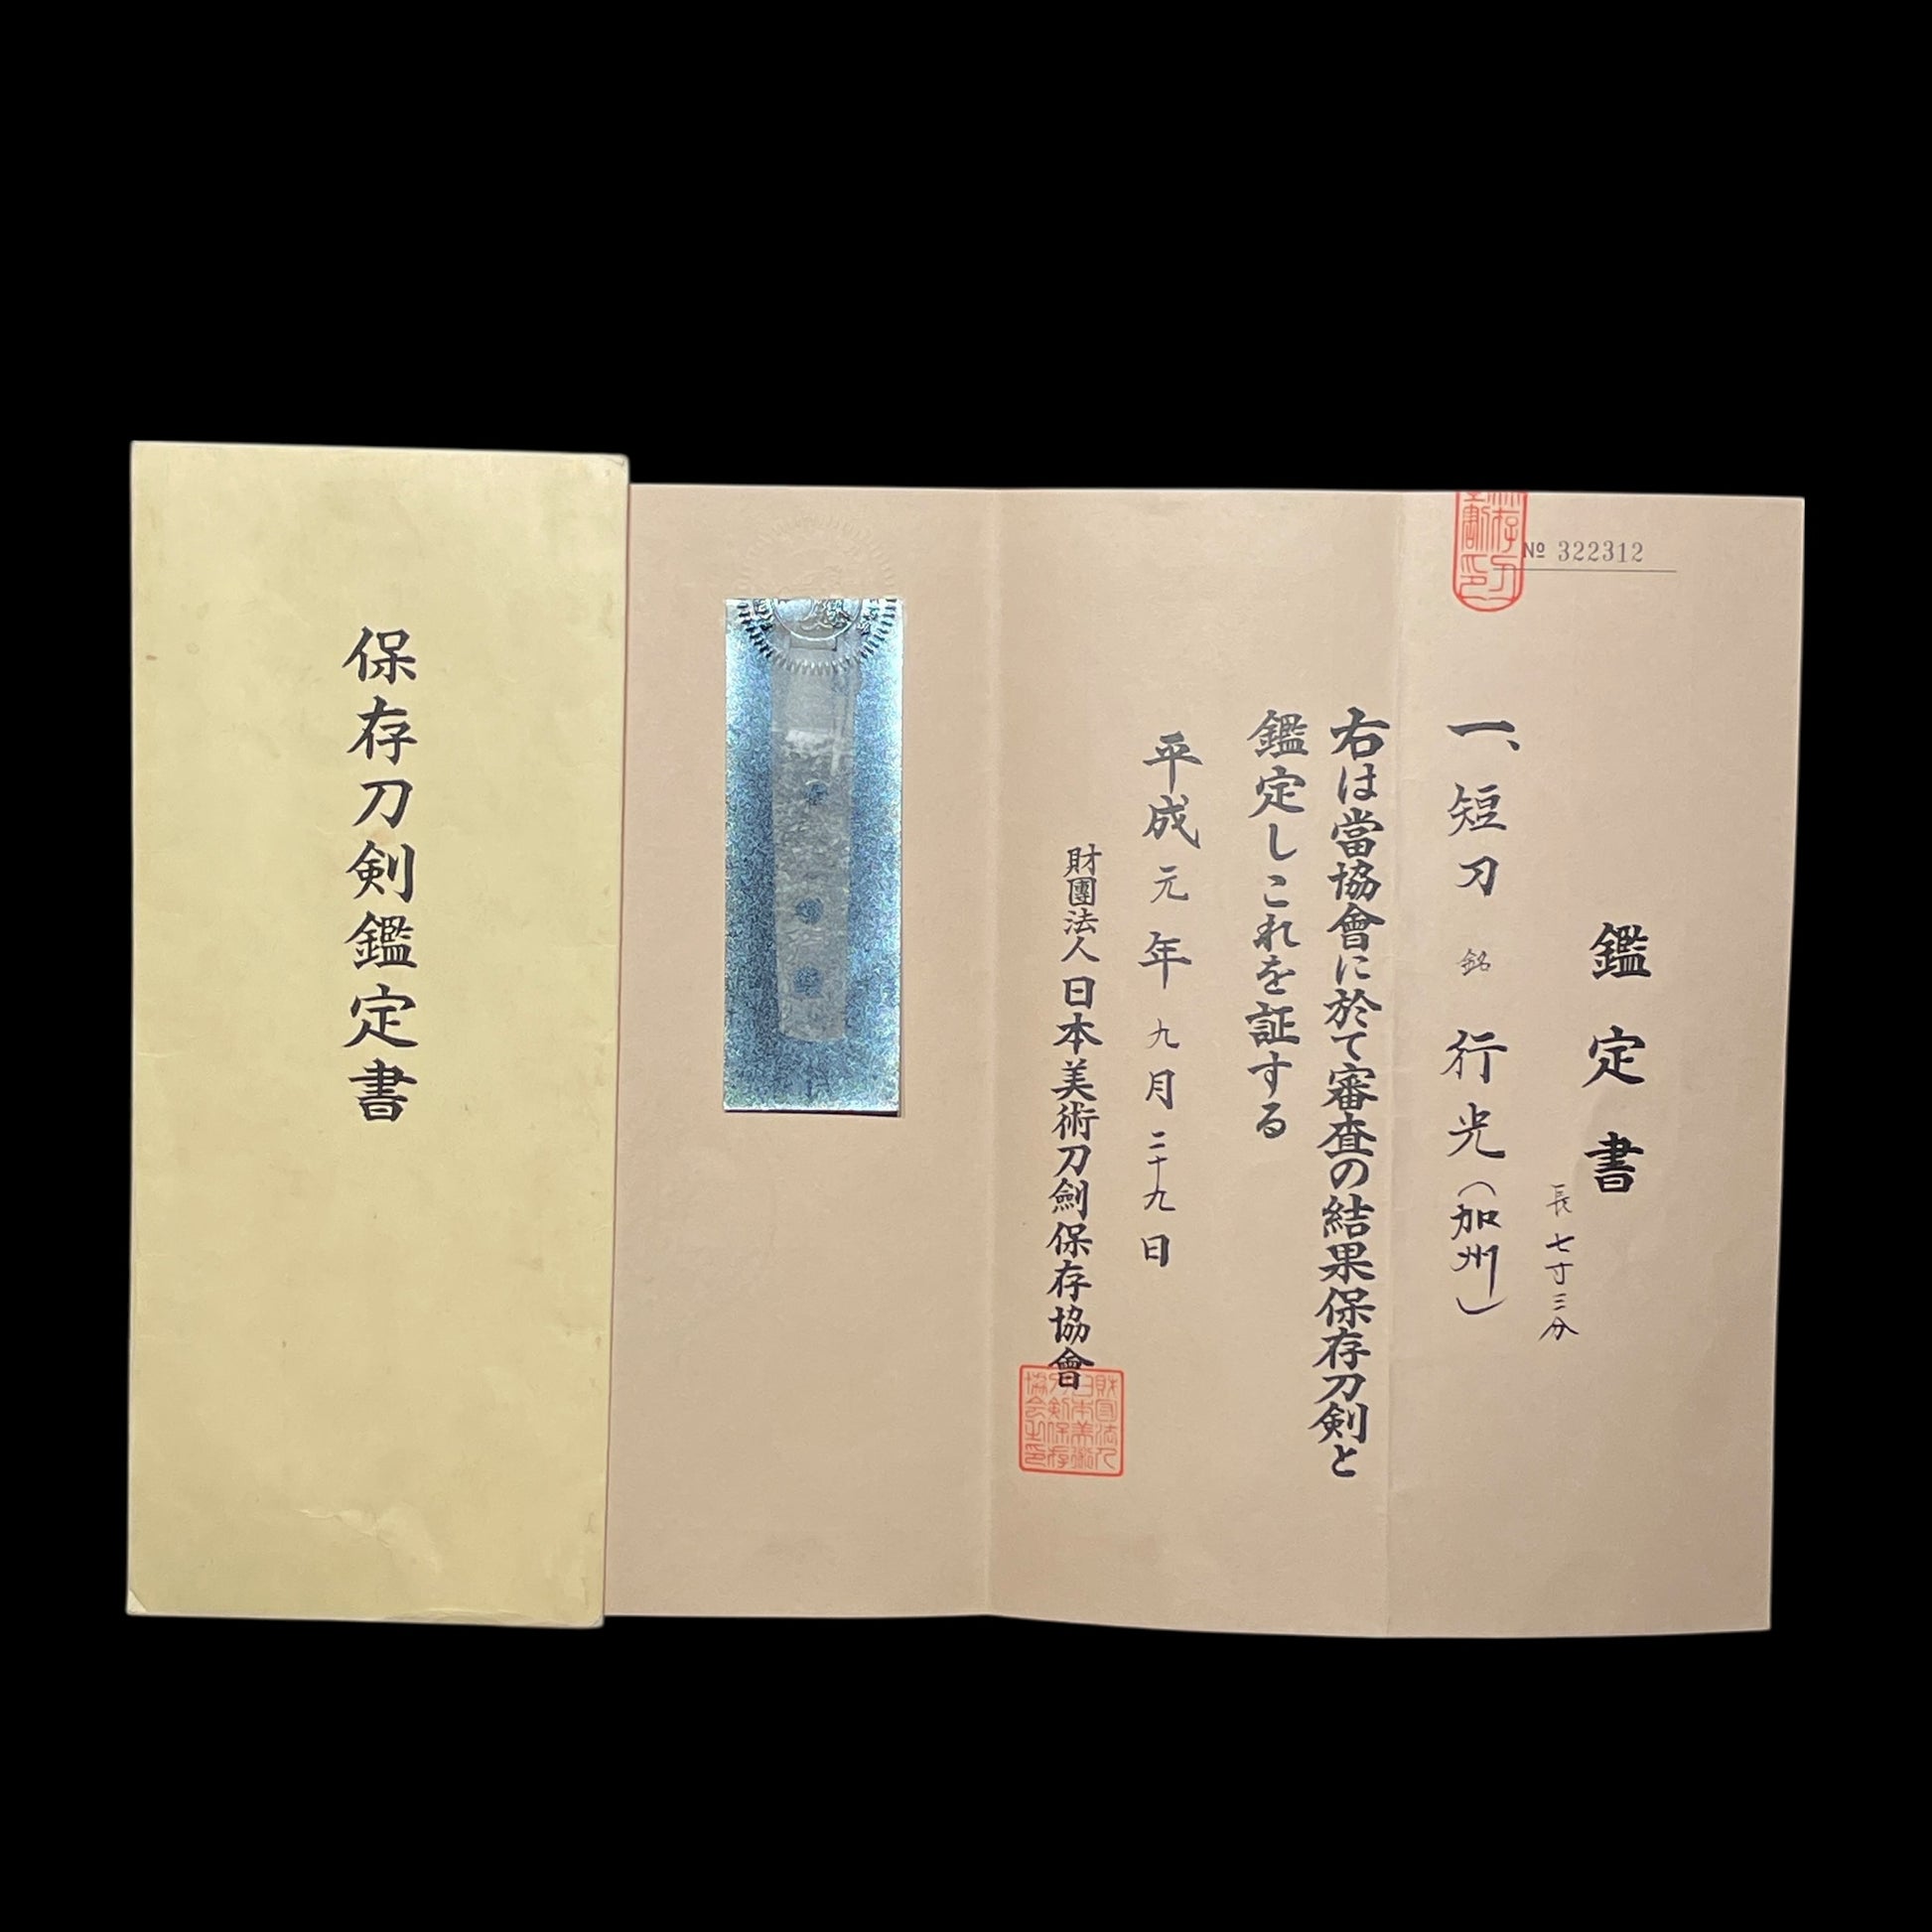 № 322312
鑑定書
長 七寸三分
一、短刀 銘 行光（加州）
右は當協會に於て審査の結果保存刀剣と
鑑定しこれを証する
平成元年九月二十九日
財團法人日本美術刀劍保存協會
保存刀剣鑑定書